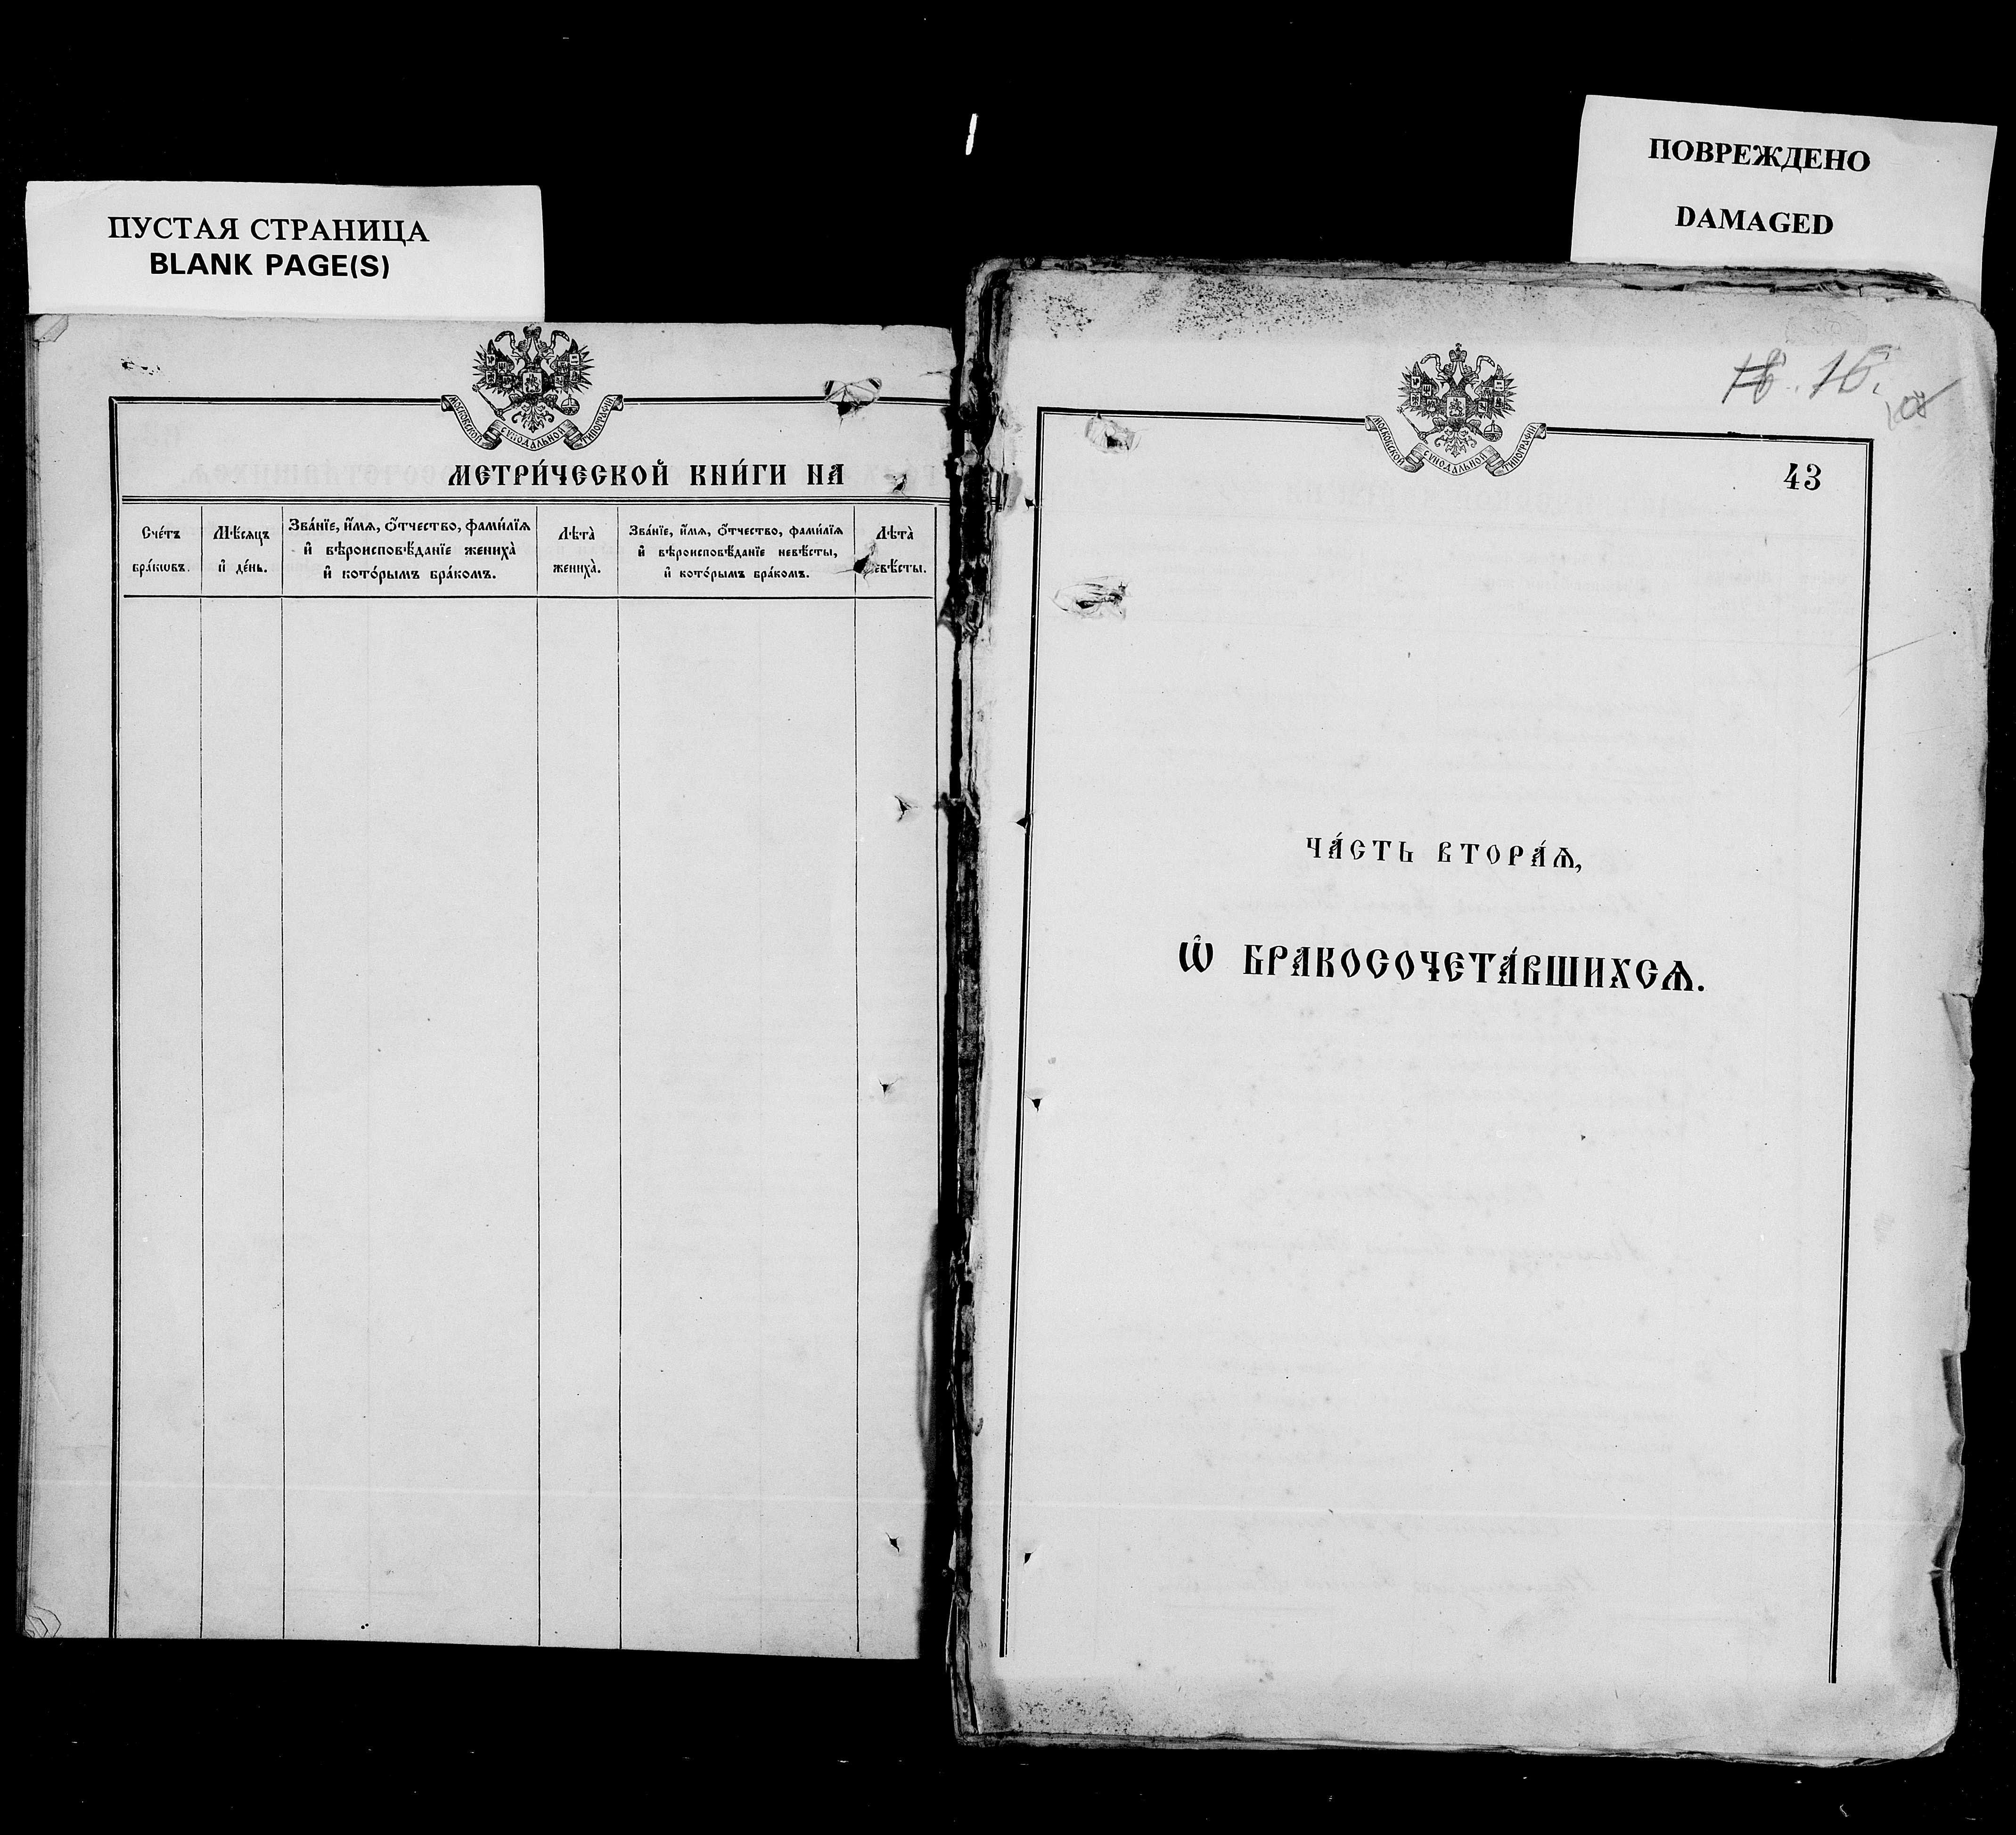 ПУСТАЯ СТРАНИЦА
BLANK PAGE(S)
МОСКОВСКОЙ СѴНОДАЛЬНОЙ ТИПОГРАФІИ
МЕТРИ́ЧЕСКОЙ КНИ́ГИ НА
Сче́тъ бра́кѡвъ.
Мѣ́сѧцъ и҆ де́нь.
Зва́нїе, и҆́мѧ, ѻ҆́тчество, фами́лїѧ
и҆ вѣроисповѣ́данїе жениха̀
и҆ кото́рымъ бра́комъ.
Лѣта̀ жениха̀.
Зва́нїе, и҆́мѧ, ѻ҆́тчество, фами́лїѧ
и҆ вѣроисповѣ́данїе невѣ́сты,
и҆ кото́рымъ бра́комъ.
Лѣта̀ евѣ́сты.
ПОВРЕЖДЕНО
DAMAGED
МОСКОВСКОЙ СѴНОДАЛЬНОЙ ТИПОГРАФІИ
43
ЧА́СТЬ ВТОРА́Ѧ,
Ѡ҆ БРАКОСОЧЕТА́ВШИХСѦ.